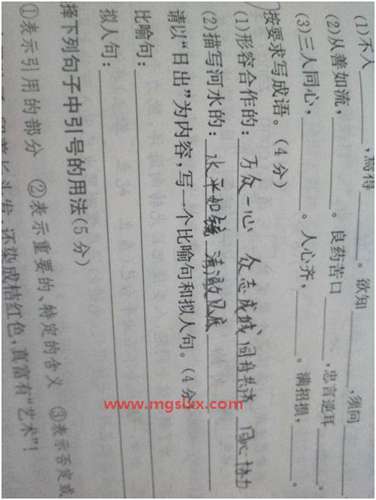 (1)不入______,焉得______。欲知______,须问______
(2)从善如流,______。良药苦口______,忠言逆耳______。
(3)三人同心,______。人心齐,______。满招损,______。
按要求写成语。(4分)
(1)形容合作的:万众一心 众志成城 同舟共济 同心协力
(2)描写河水的:水平如镜 清澈见底
请以“日出”为内容,写一个比喻句和拟人句。(4分
比喻句:
拟人句:
择下列句子中引号的用法(5分)
①表示引用的部分 ②表示重要的、特定的含义 ③表示否定或
头发,还染成桔红色,真富有“艺术”!
www.mgslxx.com